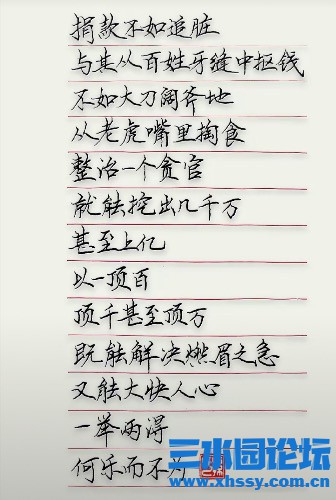 捐款不如追脏
与其从百姓牙缝中抠钱
不如大刀阔斧地
从老虎嘴里掏食
整治一个贪官
就能挖出几千万
甚至上亿
以一顶百
顶千甚至顶万
既能解决燃眉之急
又能大快人心
一举两得
何乐而不为
三水园论坛
www.xhssy.com.cn